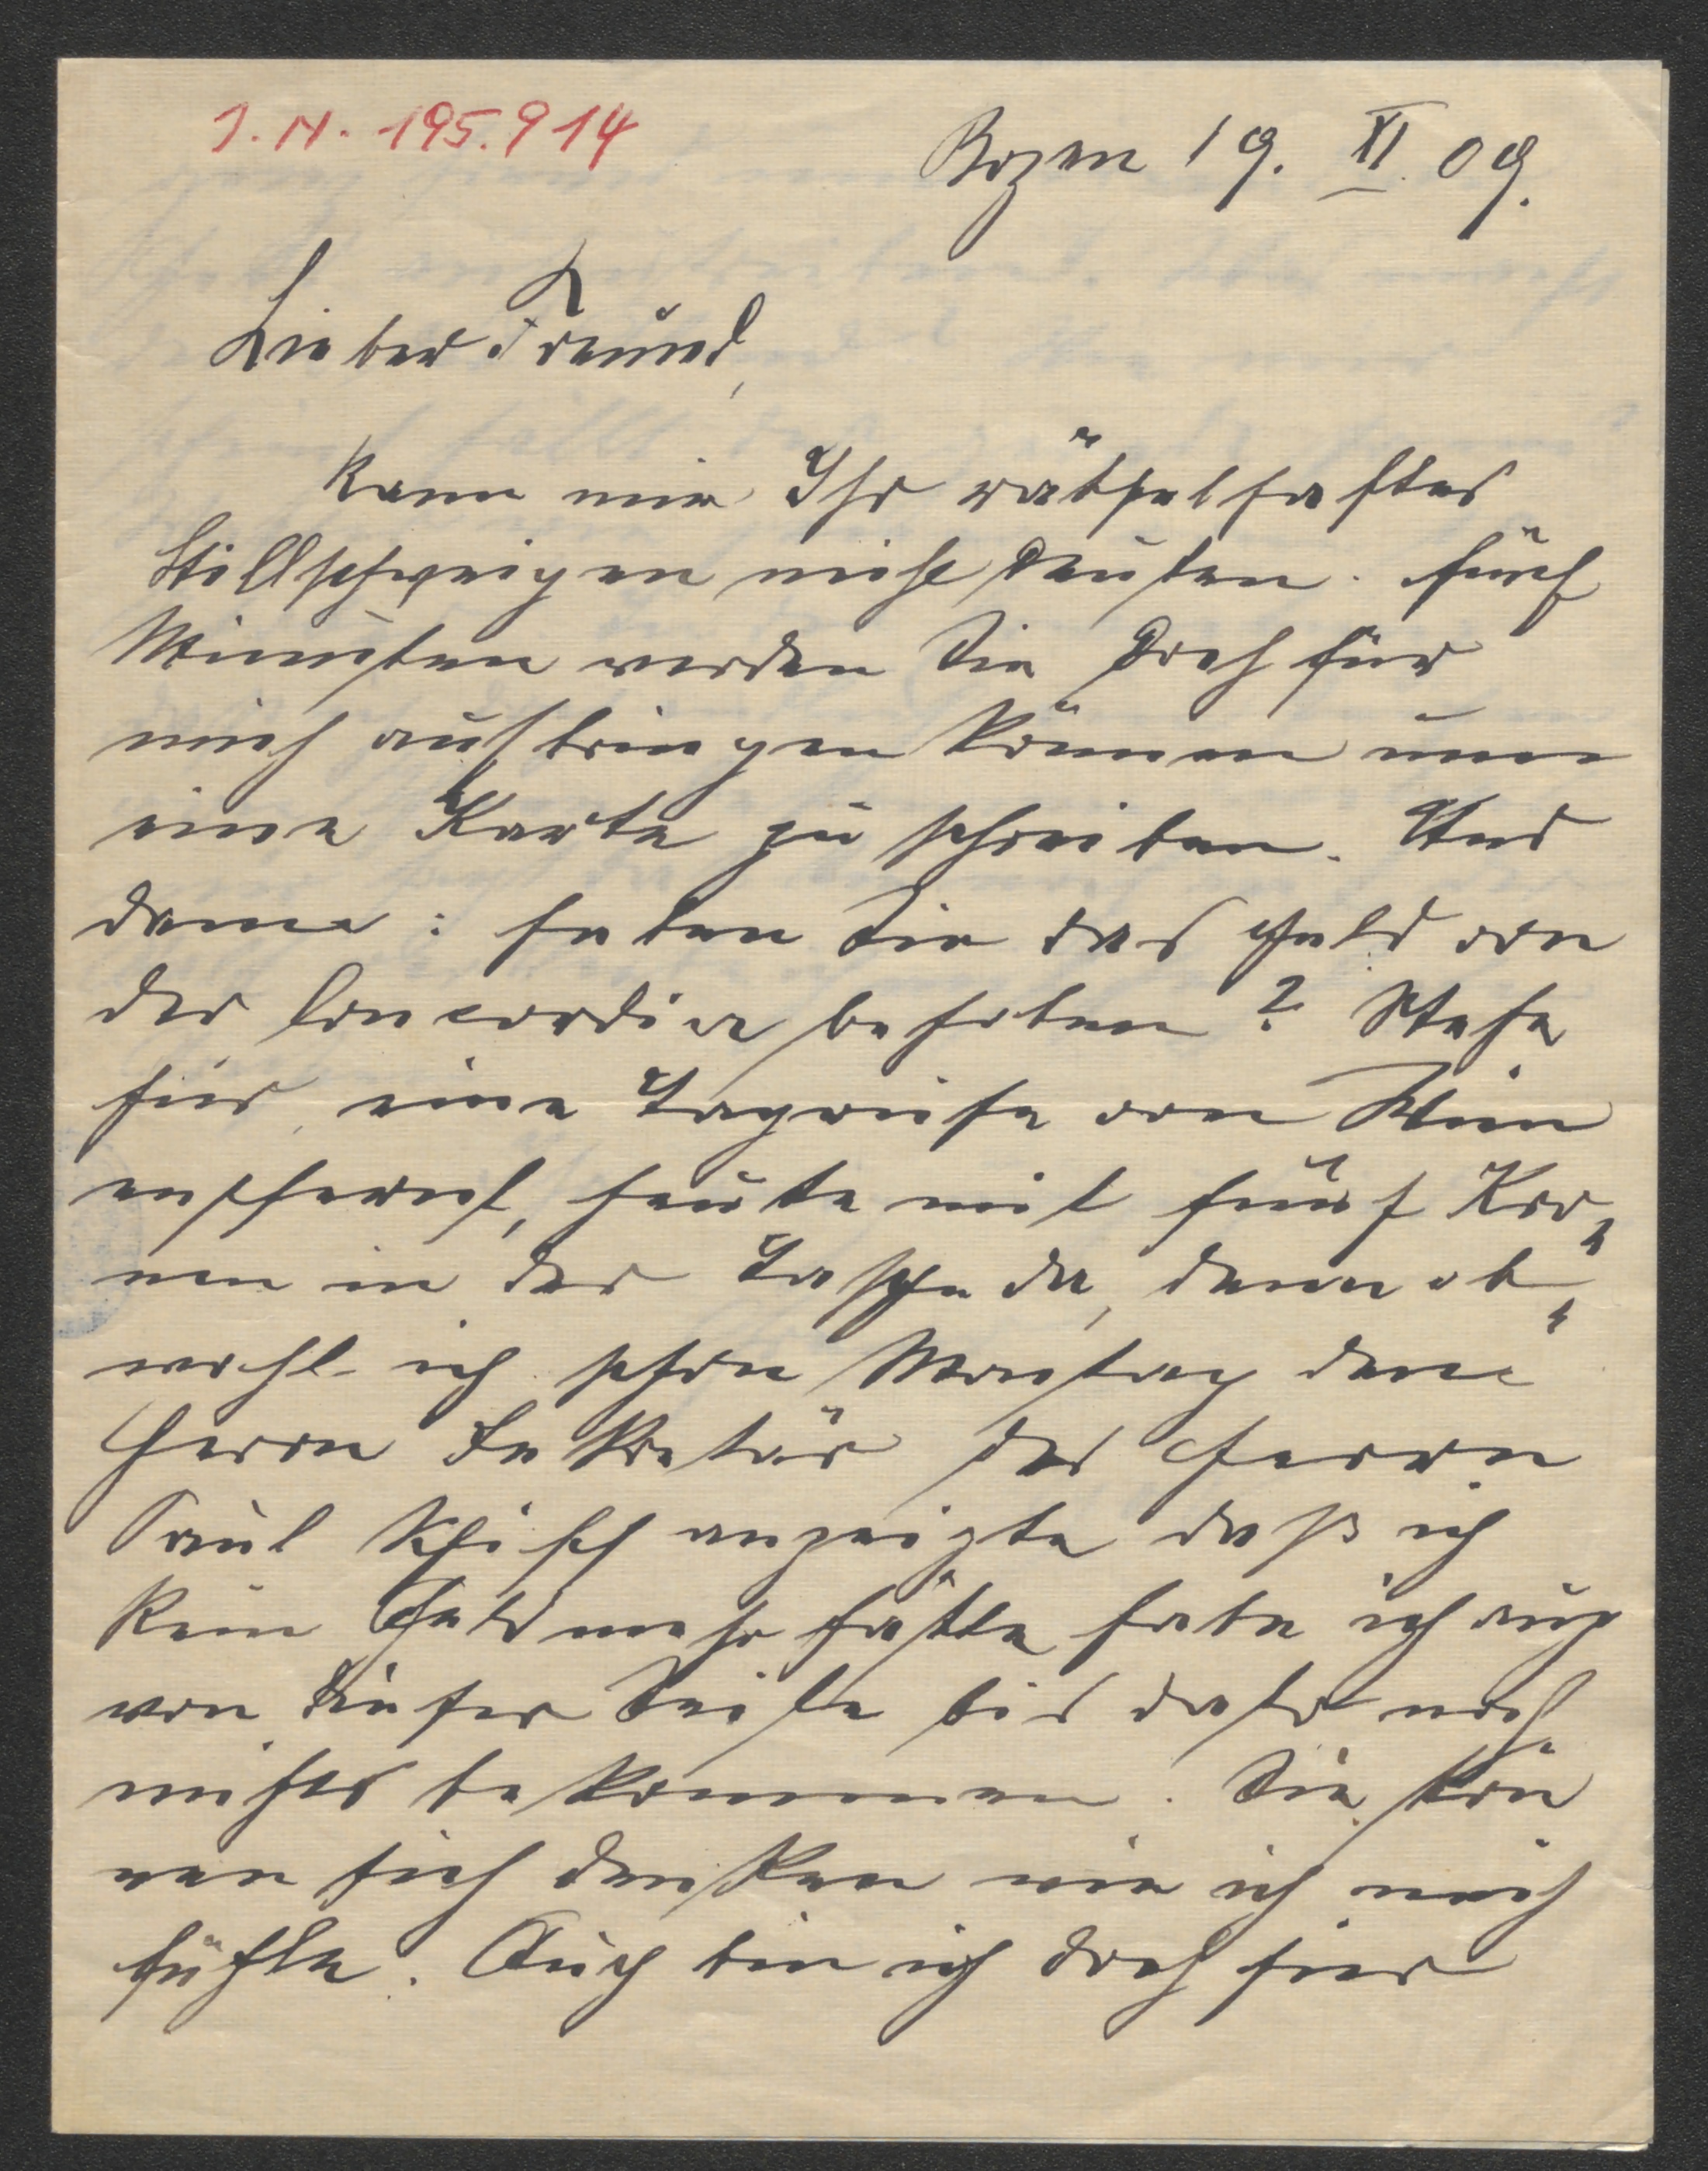 I. N. 195.914
Bozen 19. XI. 09.
Lieber Freund,
Kann mir Ihr rätselhaftes
Stillschweigen nicht deuten. Fünf
Minuten werden Sie doch für
mich aufbringen können um
eine Karte zu schreiben. Und
dann: haben Sie das Geld von
der Concordia behoben? Stehe
hier, eine Tagreise von Wien
entfernt, heute mit fünf Kro„
nen in der Tasche da, denn ob„
wohl ich schon Montag dem
Herrn Sekretär des Herrn
Paul Schiff anzeigte daß ich
kein Geld mehr hätte habe ich auch
von dieser Seite bis dato noch
nichts bekommen. Sie kön
nen sich denken wie ich mich
fühle. Auch bin ich doch hier